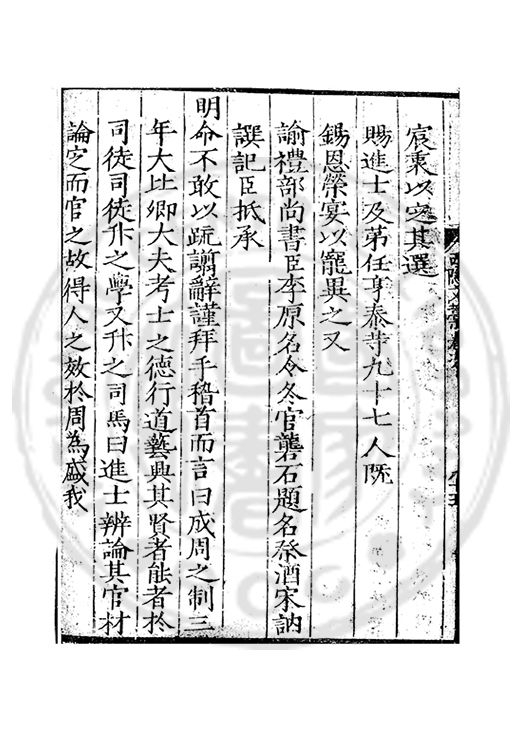 宸衷以定其選
賜進士及第任亨泰等九十七人既
錫恩榮宴以寵異之又
諭禮部尚書臣李原名令冬官礱石題名祭酒宋訥
譔記臣抵承
明命不敢以疏譾辭謹拜手稽首而言曰成周之制三
年大比鄉大夫考士之德行道藝興其賢者能者於
司徒司徒升之學又升之司馬曰進士辨論其官材
論定而官之故得人之效於周為盛我